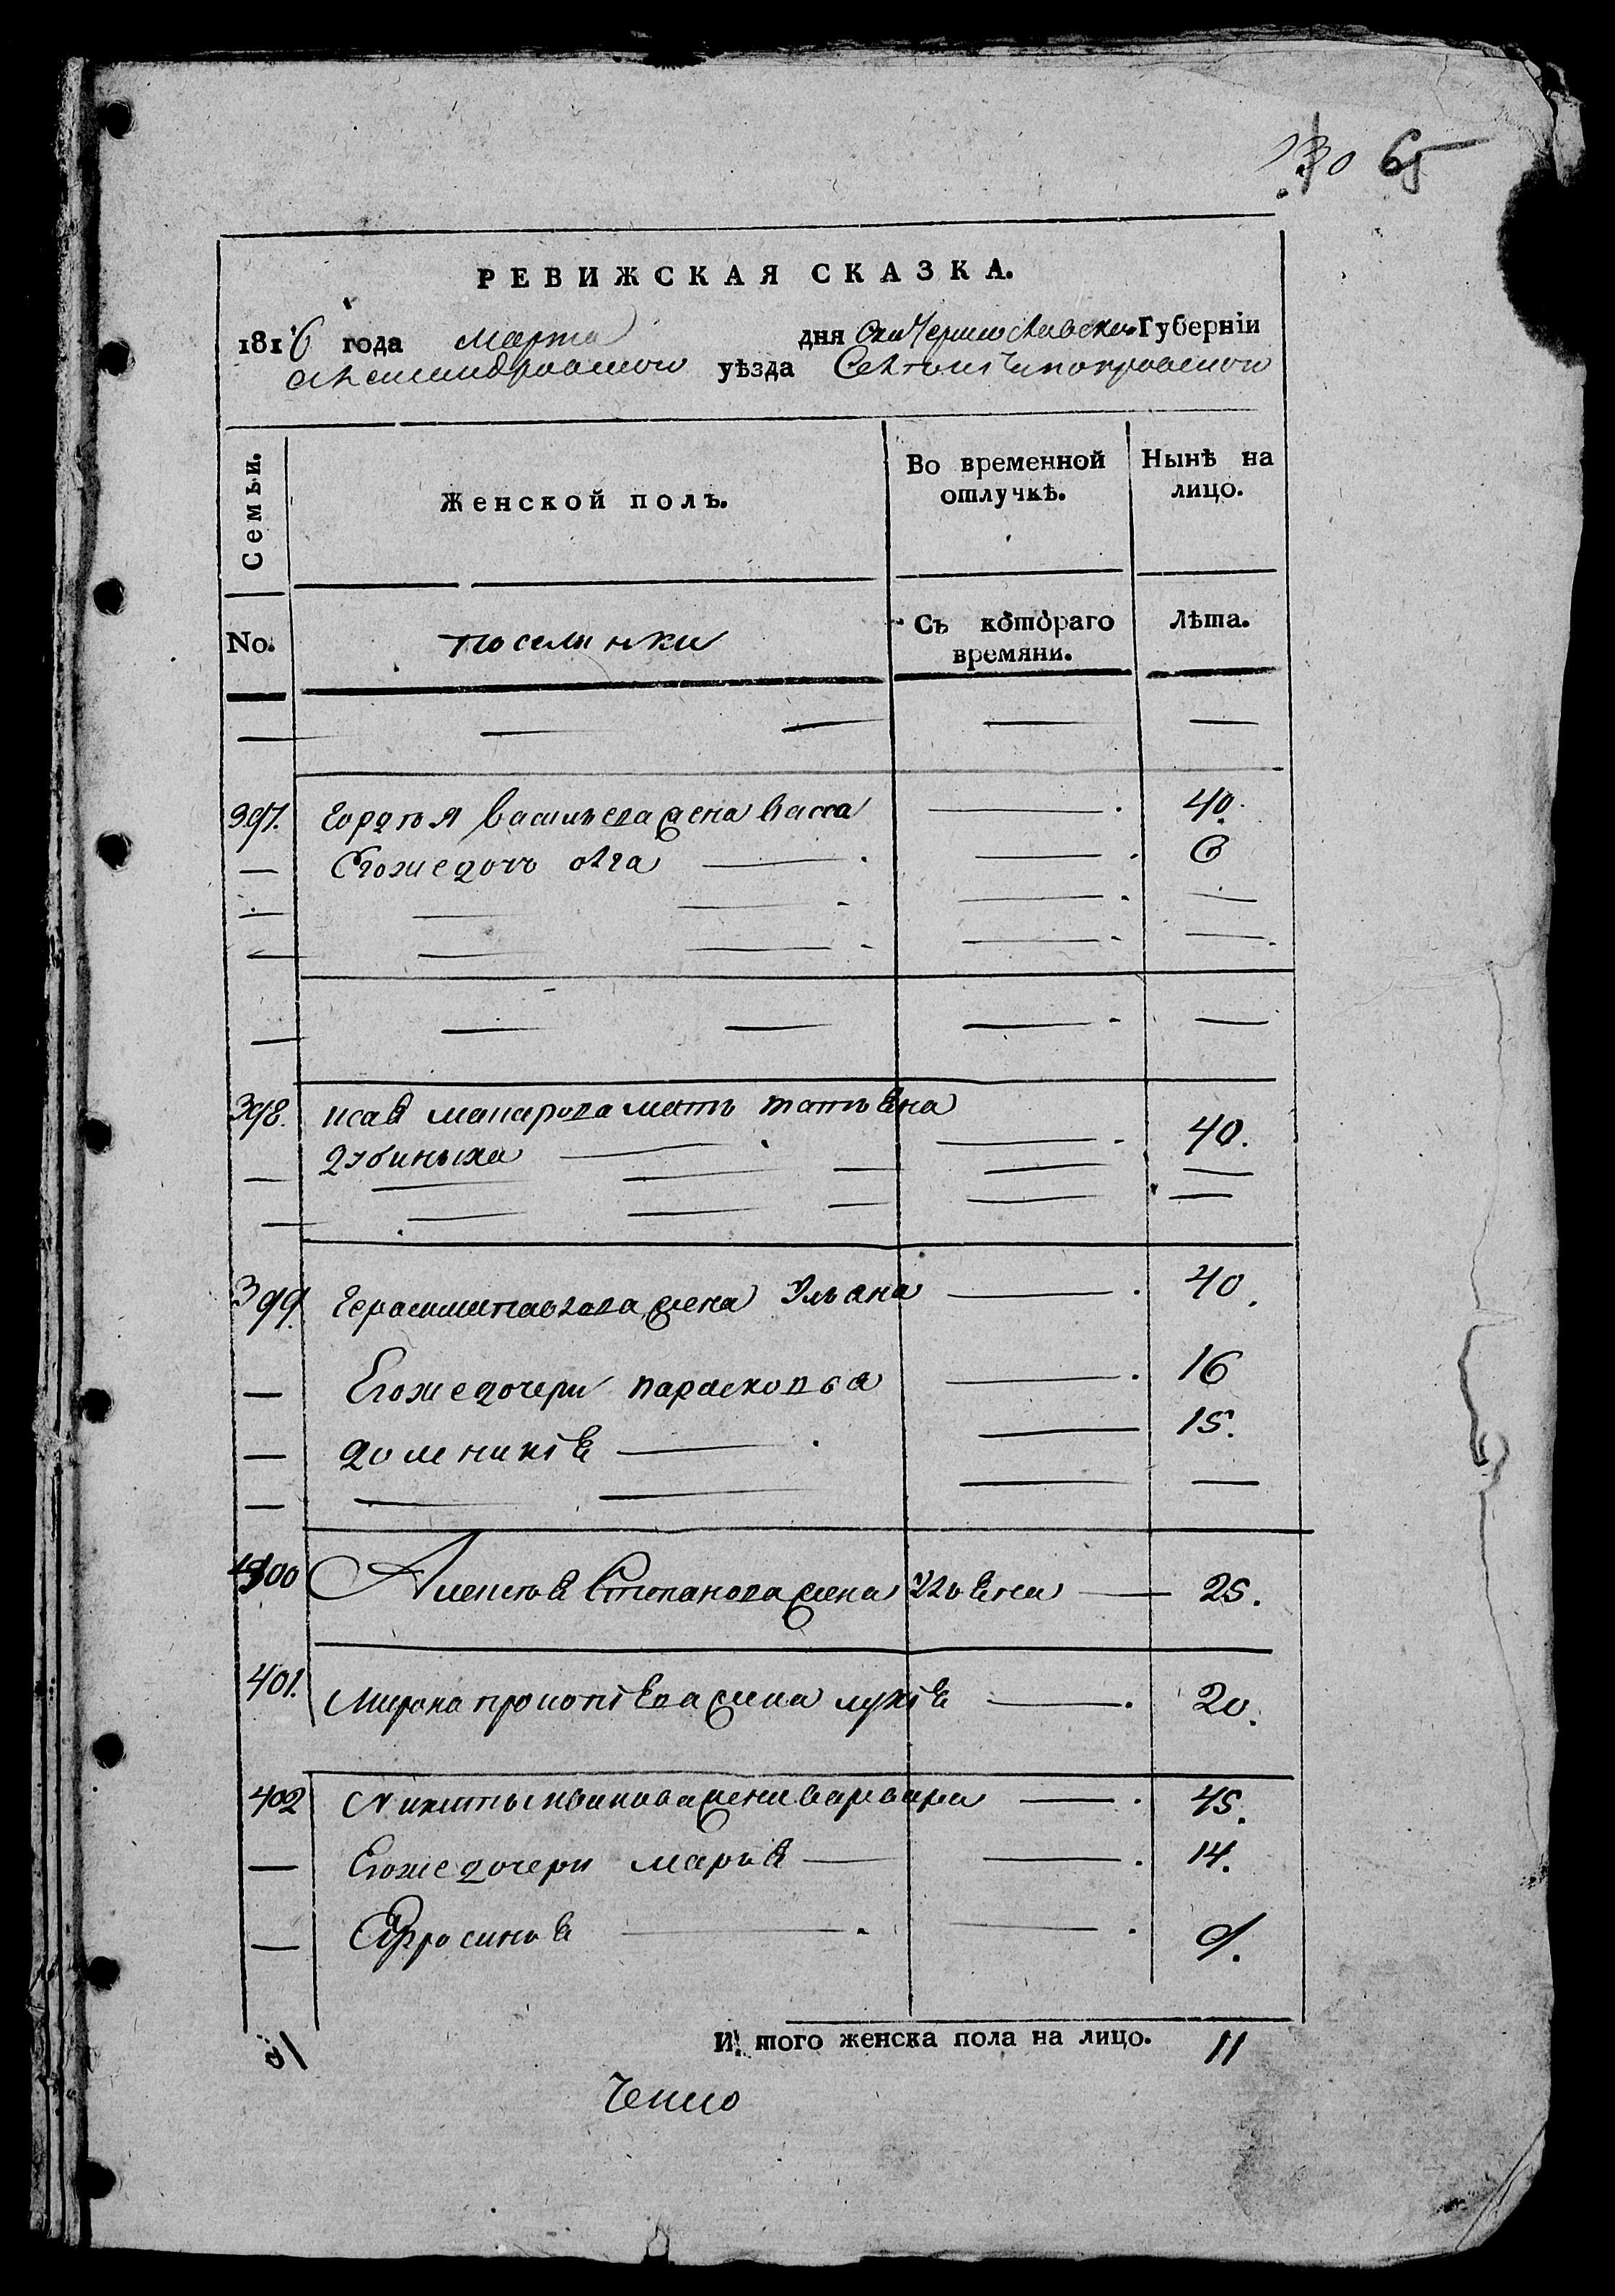 130 65
РЕВИЖСКАЯ СКАЗКА.
1816 года марта дня Екатеринославской Губерніи
александровскои уѣзда Селенія покровскои
Семьи.
Женской полъ.
Во временной отлучкѣ.
Нынѣ на лицо.
No.
поселянки
Съ котораго времяни.
Лѣта.
397. гордѣя васильева жена васса 40.
Егоже дочь олга 6
398. исая макарова мать татьяна
зубиныха 40.
399. герасима павлова жена Ульана 40.
Егоже дочери парасковья 16
доменикія 15.
400 Алексѣя Степанова жена ульяна 25.
401. Мирона прокопіева жена лукія 20.
402 Никиты иванова жена варвара 45.
Егоже дочери марья 14.
Ефросинья 9.
И того женска пола на лицо. 11